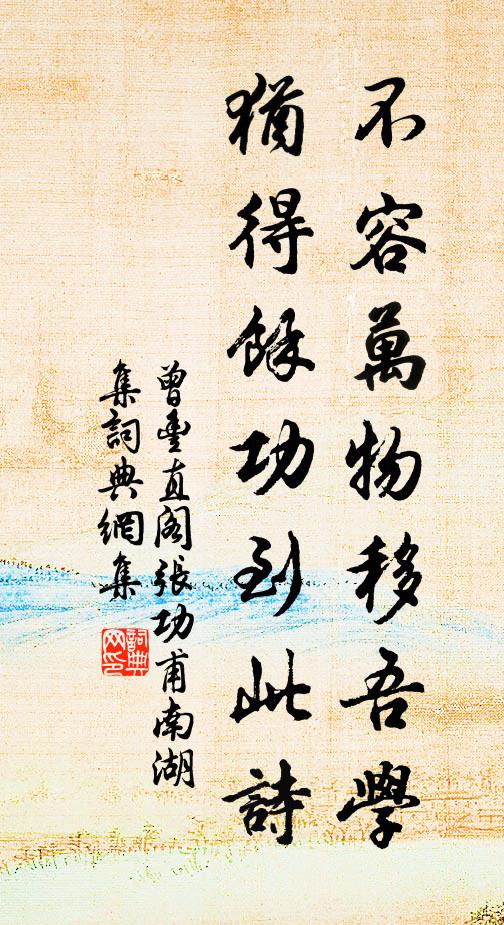 不容萬物移吾學
猶得餘功到此詩
曾豊直阁張功甫南湖
集詞典網集
詞典
网印